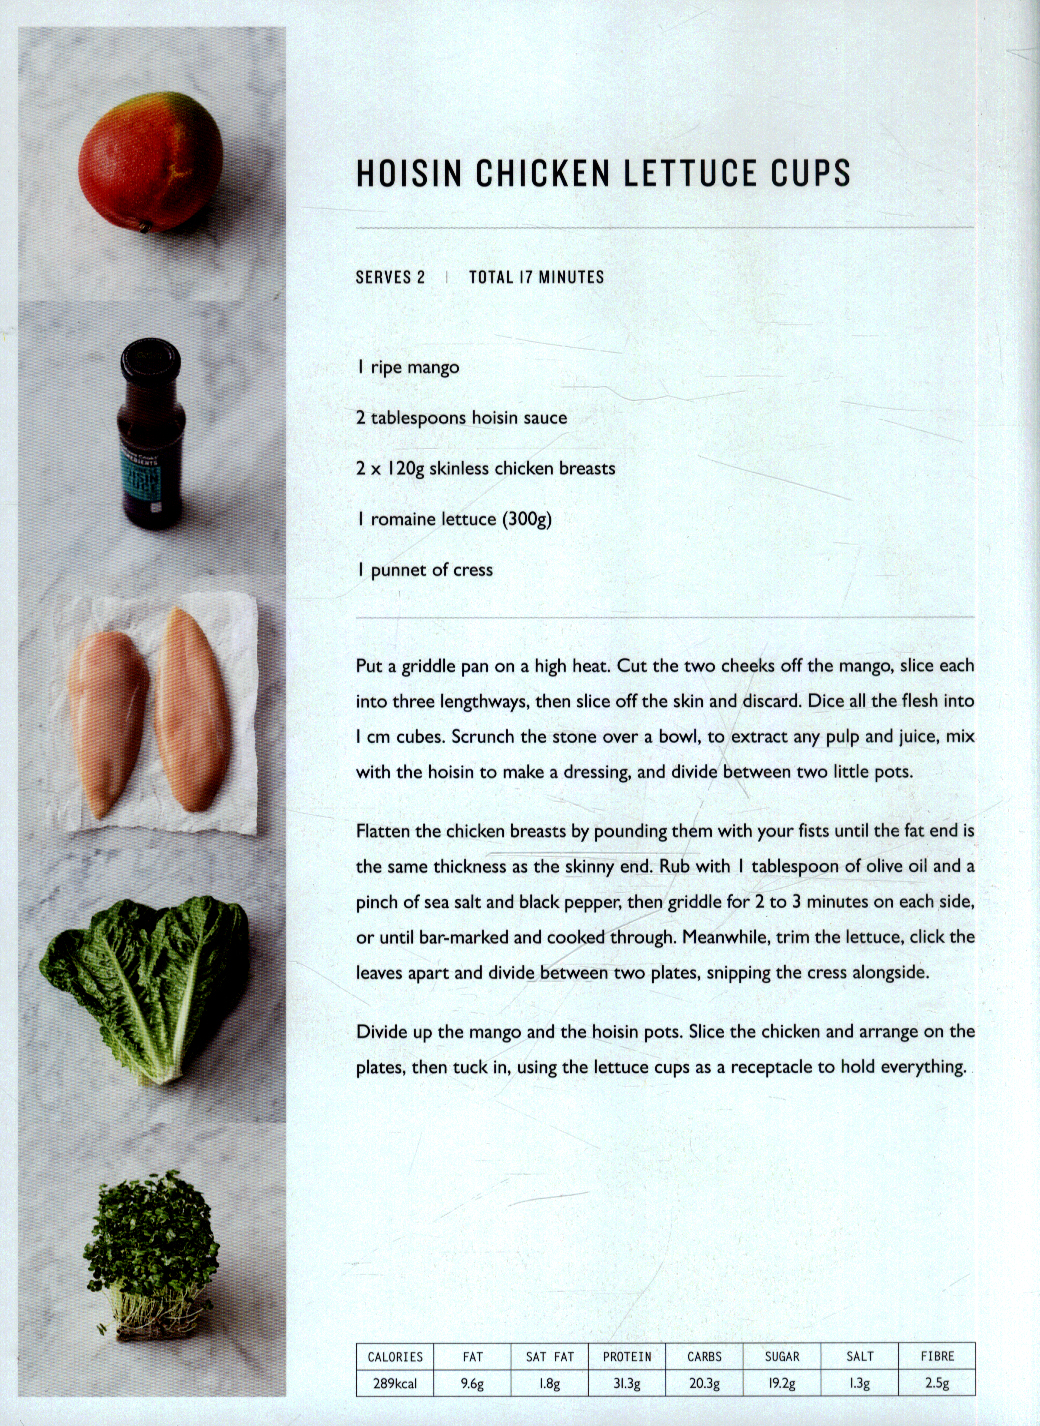 HOISIN CHICKEN LETTUCE CUPS
SERVES 2 | TOTAL 17 MINUTES
1 ripe mango
2 tablespoons hoisin sauce
2 x 120g skinless chicken breasts
1 romaine lettuce (300g)
1 punnet of cress
Put a griddle pan on a high heat. Cut the two cheeks off the mango, slice each
into three lengthways, then slice off the skin and discard. Dice all the flesh into
1 cm cubes. Scrunch the stone over a bowl, to extract any pulp and juice, mix
with the hoisin to make a dressing, and divide between two little pots.
Flatten the chicken breasts by pounding them with your fists until the fat end is
the same thickness as the skinny end. Rub with 1 tablespoon of olive oil and a
pinch of sea salt and black pepper, then griddle for 2 to 3 minutes on each side,
or until bar-marked and cooked through. Meanwhile, trim the lettuce, click the
leaves apart and divide between two plates, snipping the cress alongside.
Divide up the mango and the hoisin pots. Slice the chicken and arrange on the
plates, then tuck in, using the lettuce cups as a receptacle to hold everything.
CALORIES FAT SAT FAT PROTEIN CARBS SUGAR SALT FIBRE
289kcal 9.6g 1.8g 31.3g 20.3g 19.2g 1.3g 2.5g